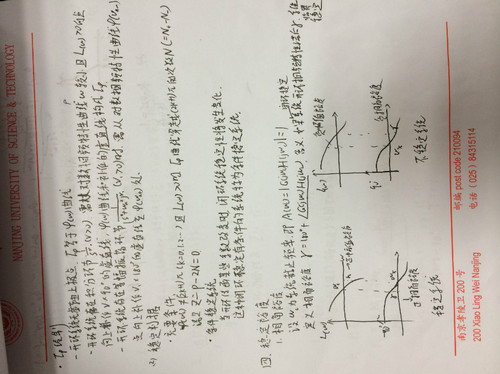 NANJING UNIVERSITY OF SCIENCE & TECHNOLOGY
· Γφ 绘制
- 开环系统无虚轴上极点 Γφ等于φ(ω)曲线
- 开环系统存在积分环节 1/s^ν (ν>0) 需从对数相频特性曲线ω较小且L(ω)>0的点
向上补作 ν×90°的虚直线,φ(ω)曲线和补作的虚直线构成Γφ
- 开环系统存在等幅振荡环节 (ν₁>0)时,需从对数相频特性曲线φ(ωn-)
点向上补作 ν₁×180°的虚直线至φ(ωn+)处.
稳定判据
· 充要条件
φ(ωc)≠(2k+1)π (k=0,1,2…)且L(ω)>0时 Γφ曲线穿越(2k+1)π的次数N(=N₊-N₋)
满足 Z=P-2N=0
· 条件稳定系统
当开环传函某些系数改变时,闭环系统稳定性将发生变化.
这种闭环稳定有条件的系统称为条件稳定系统.
四. 稳定裕度
1. 相角裕度
设ωc为系统截止频率,即 A(ωc)=|G(jωc)H(jωc)|=1
闭环稳定
定义相角裕度 γ=180°+∠G(jωc)H(jωc). 含义
系统
临界
稳定
L(ω)
正幅值裕度
正相角裕度
ωx
稳定系统
L(ω)
负幅值裕度
负相角裕度
ωx
不稳定系统
南京孝陵卫 200 号
200 Xiao Ling Wei Nanjing
邮编 post code 210094
电话 (025) 84315114